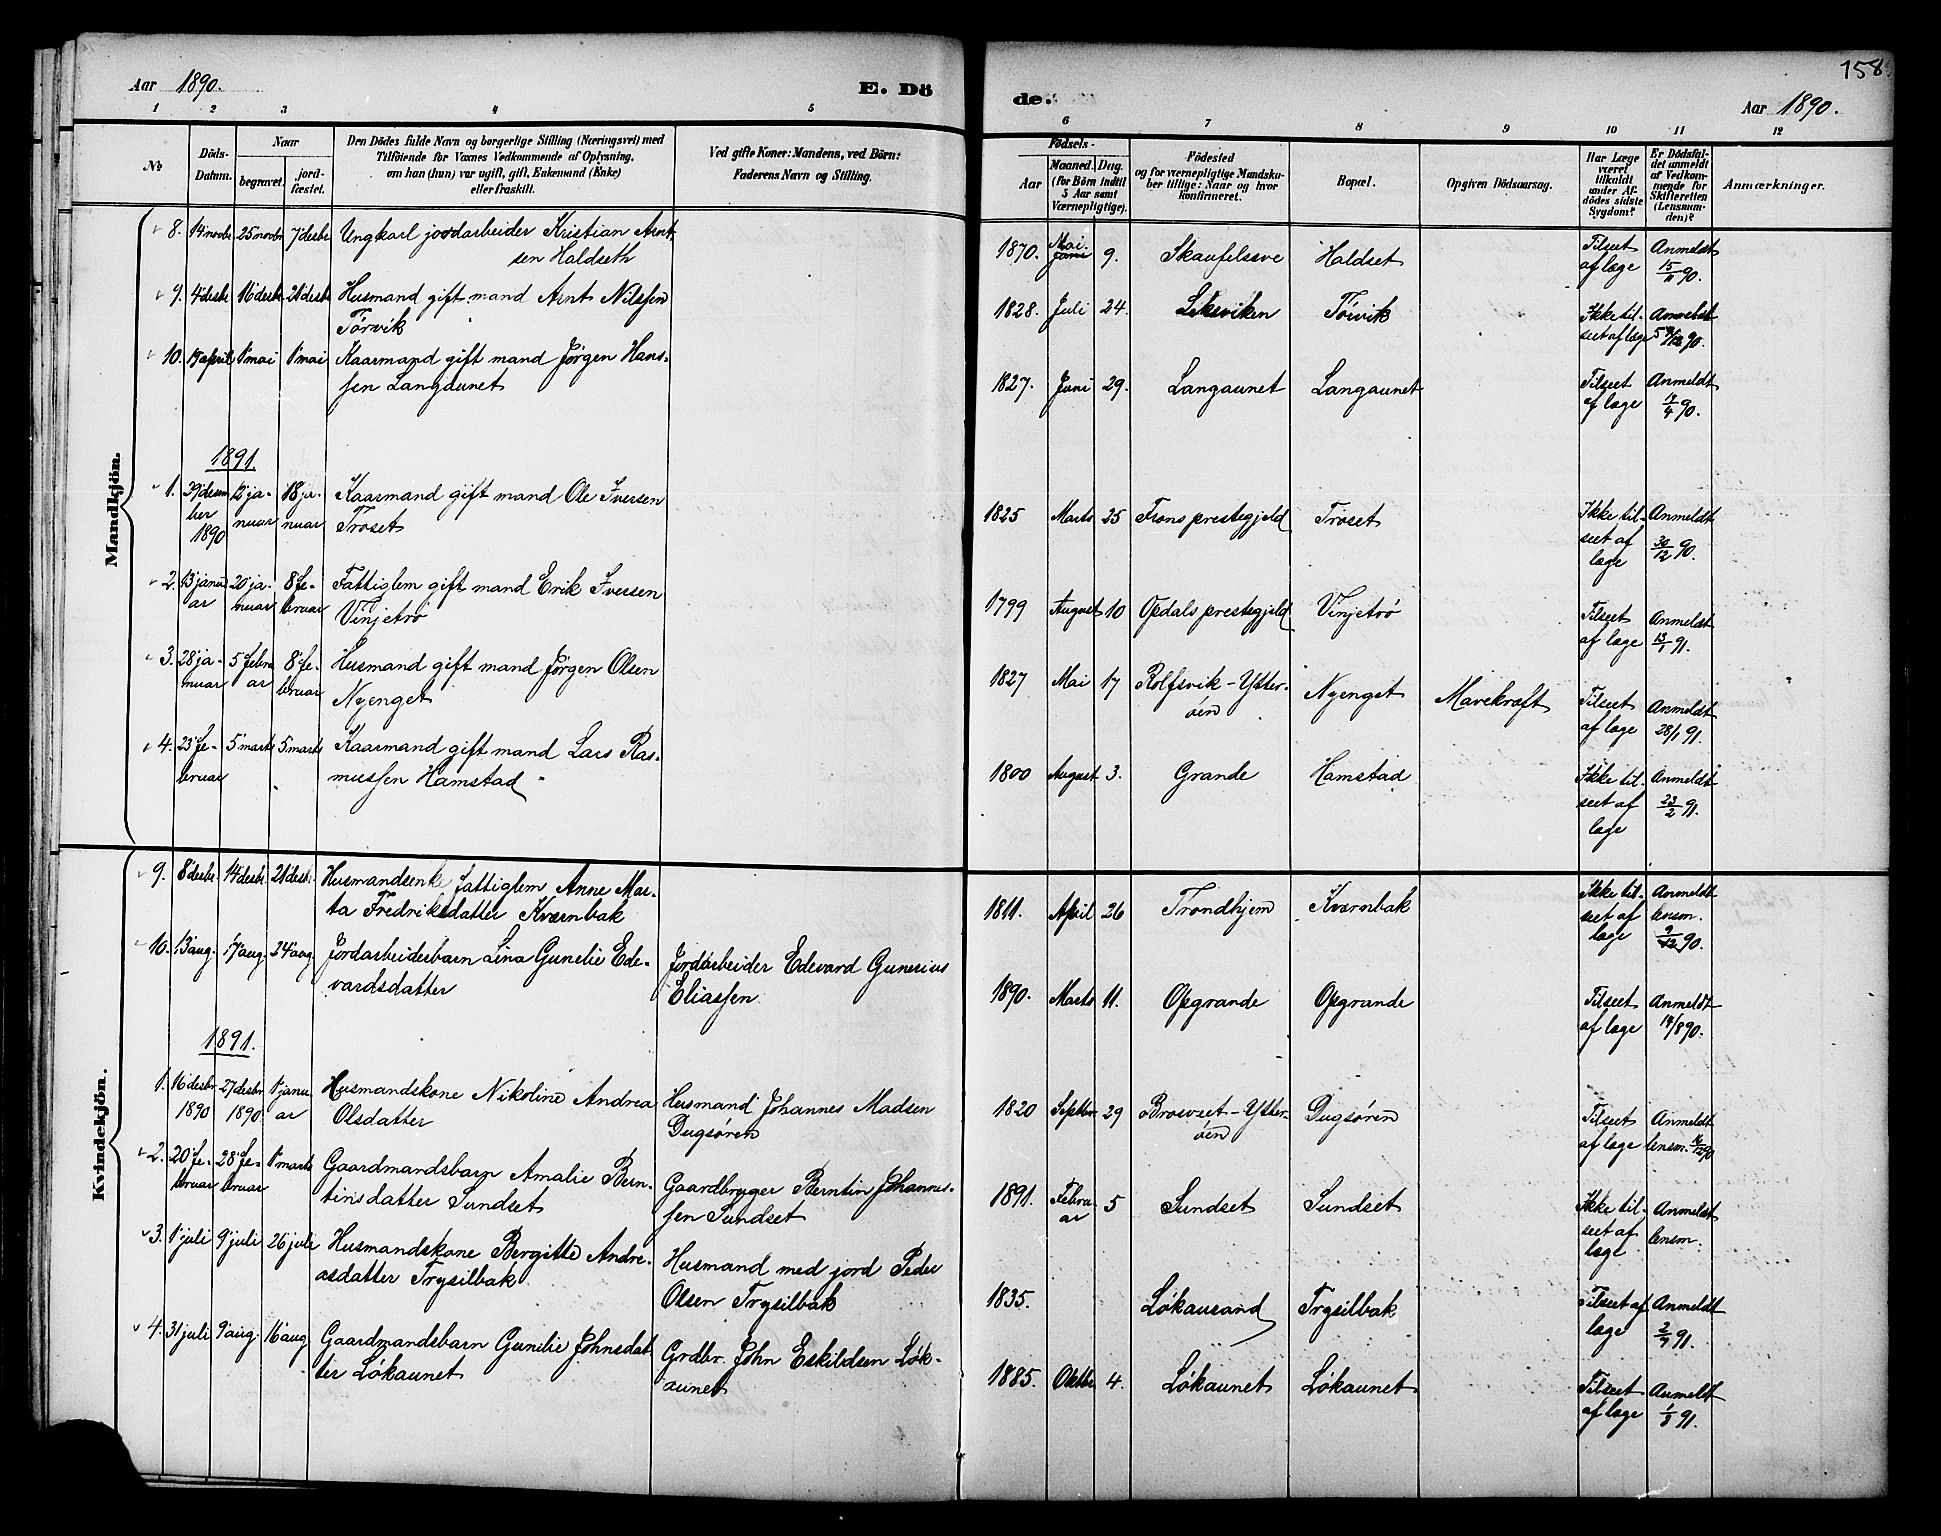 158
Aar 1890.
E. Dö
de.
Aar 1890.
1 2 3 4 5
6 7 8 9 10 11 12
No
Döds-
Datum.
Naar
begravet.
jord-
fæstet.
Den Dödes fulde Navn og borgerlige Stilling (Næringsvei) med
Tilföiende for Voxnes Vedkommende af Oplysning,
om han (hun) var ugift, gift, Enkemand (Enke)
eller fraskilt.
Ved gifte Koner: Mandens, ved Börn:
Faderens Navn og Stilling.
Födsels-
Aar
Maaned.
Dag.
(for Börn indtil
5 Aar samt
Værnepligtige).
Födested
og for værnepligtige Mandska-
ber tillige: Naar og hvor
konfirmeret.
Bopæl.
Opgiven Dödsaarsag.
Har Læge
været
tilkaldt
under Af-
dödes sidste
Sygdom?
Er Dödsfal-
det anmeldt
af Vedkom-
mende for
Skifteretten
(Lensman-
den)?
Anmærkninger.
Mandkjön.
8. 14 novbr 25 novbr 7 desbr Ungkarl jordarbeider Kristian Arnt
sen Haldseth
1870. Mai. Juni 9. Skaufelssve Haldset Tilseet af læge Anmeldt 15/11 90.
9. 4 desbr 16 desbr 21 desbr Husmand gift mand Arnt Nilssen
Törvik
1828. Juli 24. Leksviken Törvik Ikke til- seet af læge Anmeldt 90.
10. april 1 mai 1 mai Kaarmand gift mand Jörgen Hans-
sen Langaunet
1827. Juni 29. Langaunet Langaunet Tilseet af læge Anmeldt 90.
1891.
1. desem 12 ja- 18 ja-
ber nuar nuar
1890
Kaarmand gift mand Ole Iversen
Troset
1825 Marts 25 Frons prestegjeld Troset Ikke til- seet af læge Anmeldt 30/12 90.
2. 13 janu- 20 ja- 8 fe-
ar nuar bruar
Fattiglem gift mand Erik Iversen
Vinjetrö
1799 August 10 Opdals prestegjeld Vinjetrö Tilseet af læge Anmeldt 13/1 91.
3. 28 ja- 5 febru 8 fe-
nuar ar bruar
Husmand gift mand Jörgen Olsen
Nyenget
1827 Mai 17 Rolfsvik-Ytter-
öen Nyenget Mavekræft Tilseet af læge Anmeldt 28/1 91.
4. 23 fe- 5 marts 5 marts
bruar
Kaarmand gift mand Lars Ras-
mussen Hamstad
1800 August 3. Grande Hamstad Ikke til- seet af læge Anmeldt 23/2 91.
Kvindekjön.
9. 8 desbr 14 desbr 21 desbr. Husmandsenke fattiglem Anne Mar-
ta Fredriksdatter Kværnbak
1811. April 26 Trondhjem Kværnbak Ikke til- seet af læge Anmeldt lensm. 9/12 90.
10. 13 aug. 17 aug. 24 aug. Jordarbeiderbarn Lina Gunelie Ede-
vardsdatter
Jordarbeider Edevard Gunerius
Eliassen
1890. Marts 11. Opgrande Opgrande Tilseet af læge Anmeldt 14/8 90.
1891.
1. 16 desbr 27 desbr 1 janu
1890 1890 ar
Husmandskone Nikoline Andrea
Olsdatter
Husmand Johannes Madsen
Dugsören
1820 Septbr 29 Brosveet-Ytter-
öen Dugsören Tilseet af læge Anmeldt lensm. 90
2. 20 fe- 28 fe- 1 marts
bruar bruar
Gaardmandsbarn Amalie Bern-
tinsdatter Sundset
Gaardbruger Berntin Johannes-
sen Sundset
1891. Febru-
ar 5 Sundset Sundset Ikke til- seet af læge Anmeldt lensm.
3. 1 juli 9 juli 26 juli Husmandskone Bergitte Andre-
asdatter Trysilbak
Husmand med jord Peder
Olsen Trysilbak
1835. Lökausand Trysilbak Tilseet af læge Anmeldt 91.
4. 31 juli 9 aug. 16 aug. Gaardmandsbarn Gunelie Johnsdat
ter Lökaunet
Grdbr. John Eskildsen Lök-
aunet
1885. Oktbr 4. Lökaunet Lökaunet Tilseet af læge Anmeldt 1/8 91.